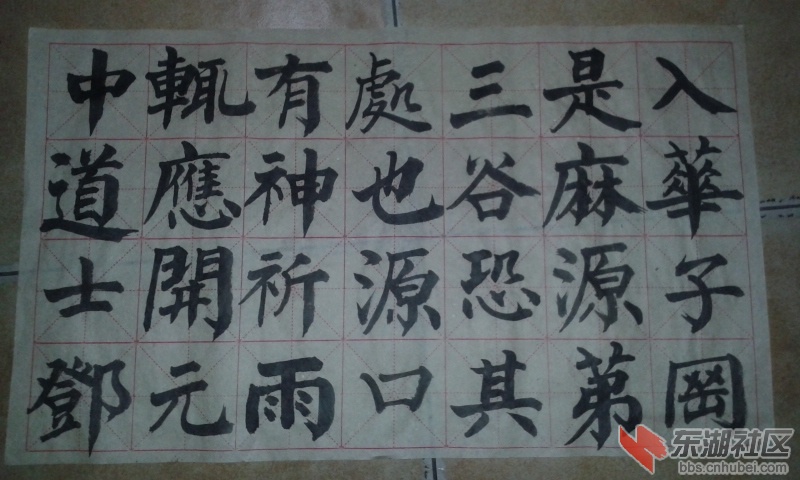 入華子岡
是麻源第
三谷恐其
處也源口
有神祈雨
輒應開元
中道士鄧
东湖社区
bbs.cnhubei.com